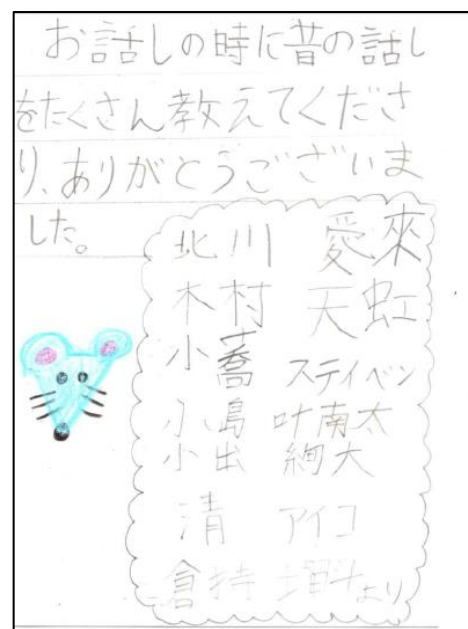 お話しの時に昔の話し
をたくさん教えてくださ
り、ありがとうございま
した。
北川 愛來
木村 天虹
小蕎 スティベン
小島 叶南太
小出 絢大
清 アイコ
倉持 より